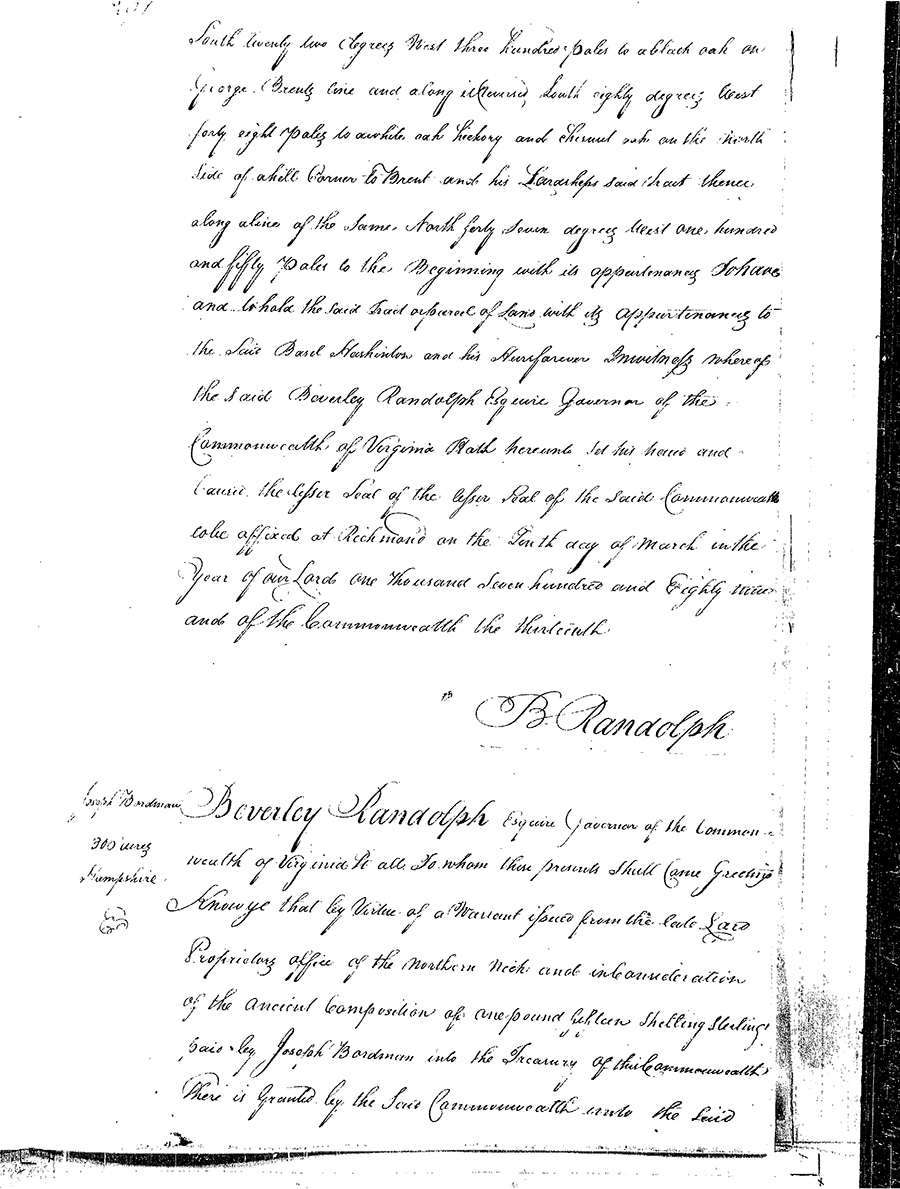 South twenty two degrees West three hundred poles to a black oak on
George Brents line and along it Reversed South eighty degrees West
forty eight Poles to a white oak hickory and Chesnut oak on the North
Side of a hill Corner to Brent and his Lordsheps said tract thence
along a line of the Same North forty Seven degrees West one hundred
and fifty Poles to the Beginning with its appurtenances To have
and to hold the said Tract or parcel of Land with its appurtenances to
the Said Basel and his Heirs forever In witness whereof
the said Beverley Randolph Esquire Governor of the
Commonwealth of Virginia Hath hereunto set his hand and
Caused the lesser Seal of the lesser Seal of the said Commonwealth
to be affixed at Richmond on the Tenth day of March in the
Year of our Lord one thousand Seven hundred and Eighty nine
and of the Commonwealth the thirteenth
B. Randolph
Joseph Bordman
300 acres
Hampshire
Beverley Randolph Esquire Governor of the Common-
wealth of Virginia To all To whom these presents Shall Come Greeting
Know ye that by Virtue of a Warrant issued from the late Lord
Proprietors office of the Northern Neck and in Consideration
of the Ancient Composition of one pound Shilling Sterling
paid by Joseph Bordman into the Treasury of this Commonwealth
There is Granted by the Said Commonwealth unto the Said